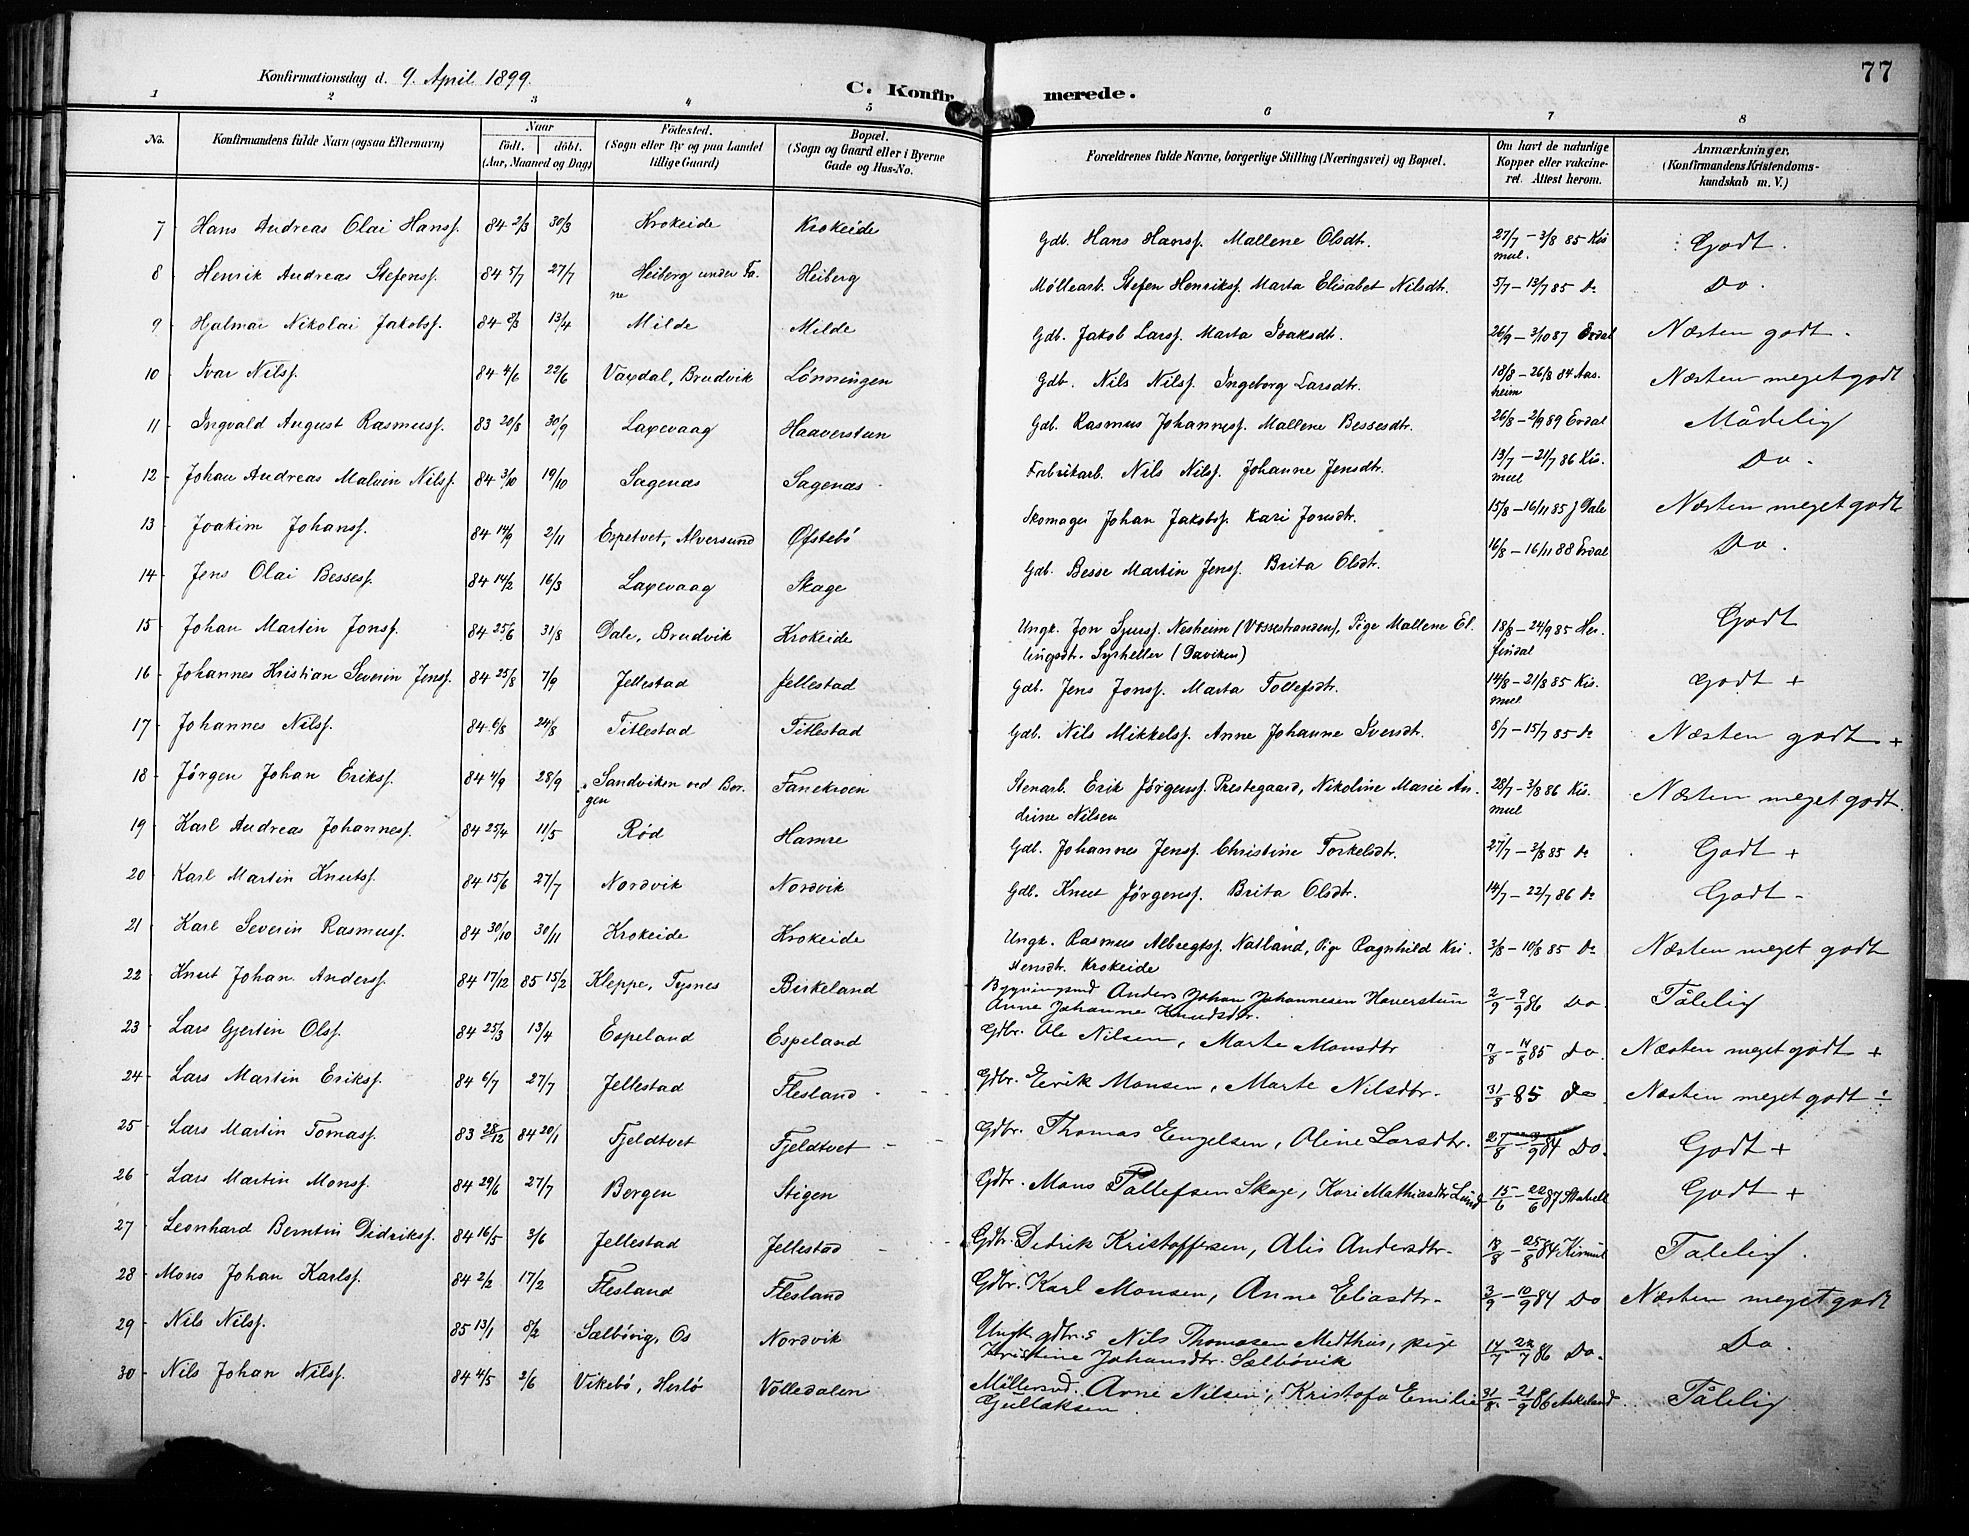 77
Konfirmationsdag d. 9. April 1899.
C. Konfirmerede.
1 2 3 4 5 6 7 8
No. Konfirmandens fulde Navn (ogsaa Efternavn) Naar født. døbt. (Aar, Maaned og Dag) Fødested. (Sogn eller By og paa Landet tillige Gaard) Bopæl. (Sogn og Gaard eller i Byerne Gade og Hus-No. Forældrenes fulde Navne, borgerlige Stilling (Næringsvei) og Bopæl. Om havt de naturlige Kopper eller vakcineret. Attest herom. Anmærkninger, (Konfirmandens Kristendomskundskab m. V.)
7 Hans Andreas Olai Hansf. 84 2/3 30/3 Krokeide Krokeide Gdb. Hans Hansf. Mallene Olsdtr. 27/7 – 3/8 85 Kismul. Godt.
8 Henrik Andreas Stefensf. 84 5/7 27/7 Heiberg under Fane Heiberg Møllearb. Stefen Henriksf. Marta Elisabet Nilsdtr. 5/7 – 13/7 85 do Do.
9 Hjalmar Nikolai Jakobsf. 84 8/3 13/4 Milde Milde Gdb. Jakob Larsf. Marta Isaksdtr. 26/9 – 3/10 87 Erdal Næsten godt.
10 Ivar Nilsf. 84 4/6 22/6 Vaxdal, Brudvik Lønningen Gdb. Nils Nilsf. Ingeborg Larsdtr. 18/8 – 26/8 84 Aasheim Næsten meget godt
11 Ingvald August Rasmusf. 83 20/8 30/9 Laxevaag Haaverstun Gdb. Rasmus Johannesf. Mallene Bessesdtr. 26/8 – 2/9 89 Erdal Mådelig
12 Johan Andreas Malvin Nilsf. 84 3/10 19/10 Sagenæs Sagenæs Fabrikarb. Nils Nilsf. Johanne Jensdtr. 13/7 – 21/7 86 Kismul Do.
13 Joakim Johansf. 84 14/9 2/11 Espetvet, Alversund Øfstebø Skomager Johan Jakobsf. Kari Jonsdtr. 15/8 – 16/11 85 J Dale Næsten meget godt
14 Jens Olai Bessesf. 84 14/2 16/3 Laxevaag Skage Gdb. Besse Martin Jensf. Brita Olsdtr. 16/8 – 16/11 88 Erdal Do.
15 Johan Martin Jonsf. 84 25/6 31/8 Dale, Brudvik Krokeide Ungk. Jon Sjursf. Nesheim (Vossestranden), Pige Mallene Ellingsdtr. (Daviken) 18/8 – 24/9 85 Godt
16 Johannes Kristian Severin Jensf. 84 25/8 7/9 Jellestad Jellestad Gdb. Jens Jonsf. Marta Tollefsdtr. 14/8 – 21/8 85 Kismul Godt +
17 Johannes Nilsf. 84 6/8 24/8 Titlestad Titlestad Gdb. Nils Mikkelsf. Anne Johanne Iversdtr. 8/7 – 15/7 85 do Næsten godt +
18 Jørgen Johan Eriksf. 84 4/9 28/9 Sandviken ved Bergen Fanekroen Stenarb. Erik Jørgensf. Prestegaard, Nikoline Marie Andrine Nilsen 28/7 – 3/8 86 Kismul Næsten meget godt.
19 Karl Andreas Johannesf. 84 25/4 11/5 Rød Hamre Gdb. Johannes Jensf. Christine Torkelsdtr. 27/7 – 3/8 85 do Godt +
20 Karl Martin Knutsf. 84 15/6 27/7 Nordvik Nordvik Gdb. Knut Jørgensf. Brita Olsdtr. 14/7 – 22/7 86 do Godt –
21 Karl Severin Rasmusf. 84 30/10 30/11 Krokeide Krokeide Ungk. Rasmus Albregtsf. Natland, Pige Ragnhild Kristensdtr. Krokeide 3/8 – 10/8 85 do Næsten meget godt
22 Knut Johan Andersf. 84 17/12 85 15/2 Kleppe, Tysnes Birkeland Bygningsmd Anders Johan Johannesen Haverstun Anne Johanne Knudsdtr. 2/9 – 9/9 86 Do. Tålelig
23 Lars Gjertin Olsf. 84 25/3 13/4 Espeland Espeland Gdbr. Ole Nilsen, Marte Monsdtr 7/8 – 14/8 85 do. Næsten meget godt +
24 Lars Martin Eriksf. 84 6/7 27/7 Jellestad Flesland Gdbr. Eirik Monsen, Marte Nilsdtr. 31/8 85 do Næsten meget godt ÷
25 Lars Martin Tomasf. 83 28/12 84 20/1 Fjeldtvet Fjeldtvet Gdbr. Thomas Engelsen, Oline Larsdtr. 27/8 – 3/9 84 Do. Godt +
26 Lars Martin Monsf. 84 29/6 27/7 Bergen Stigen Gdbr. Mons Tollefsen Skage, Kari Mathiasdtr Lund 15/6 – 22/6 87 Godt +
27 Leonhard Berntin Didriksf. 84 16/5 3/6 Jellestad Jellestad Gdbr. Didrik Kristoffersen, Alis Andersdtr. 18/8 – 25/8 84 Kismul Tålelig.
28 Mons Johan Karlsf. 84 2/2 17/2 Flesland Flesland Gdbr. Karl Monsen, Anne Eliasdtr. 3/9 – 10/9 84 Do Næsten meget godt
29 Nils Nilsf. 85 13/1 8/2 Sælbøvig, Os Nordvik Ungk. gdbr.s Nils Thomasen Midthus, pige Kristine Johansdtr. Sælbøvik 14/7 – 22/7 86 Do. Do.
30 Nils Johan Nilsf. 84 4/5 2/6 Vikebø, Herlø Volledalen Møllersvd. Arne Nilsen, Kristofa Emilie Gullaksen 31/8 – 21/9 86 Askeland Tålelig.